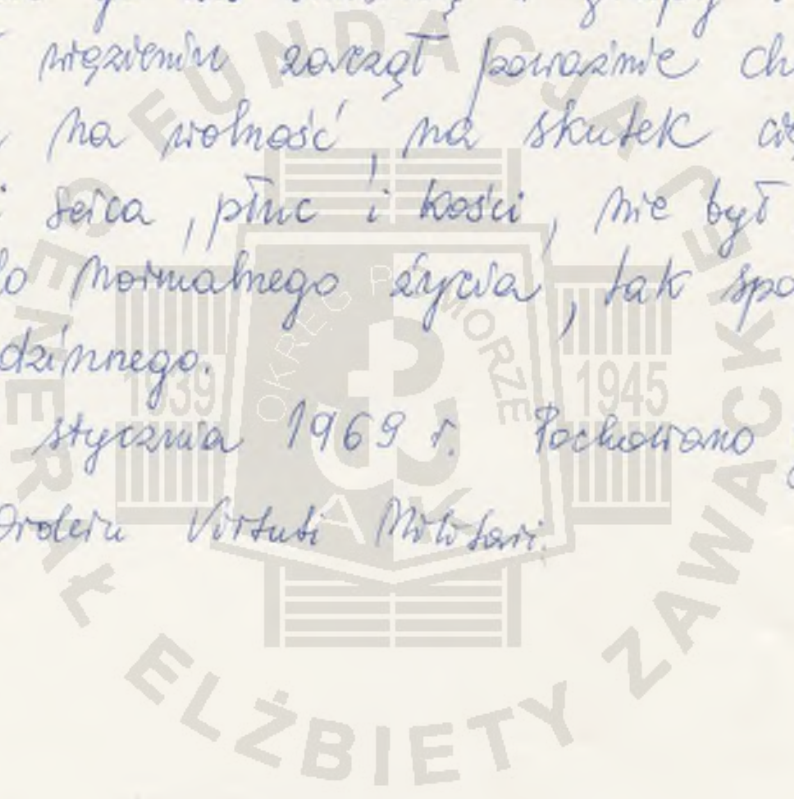 więzieniu zaczął poważnie ch
na wolność, na skutek cię
i serca, płuc i kości, nie był
o normalnego życia, tak spo
dzinnego.
stycznia 1969 r. Pochowano
Orderu Virtuti Militari.
FUNDACJA GENERAŁ ELŻBIETY ZAWACKIEJ
OKRĘG POMORZE
1939 1945
AK